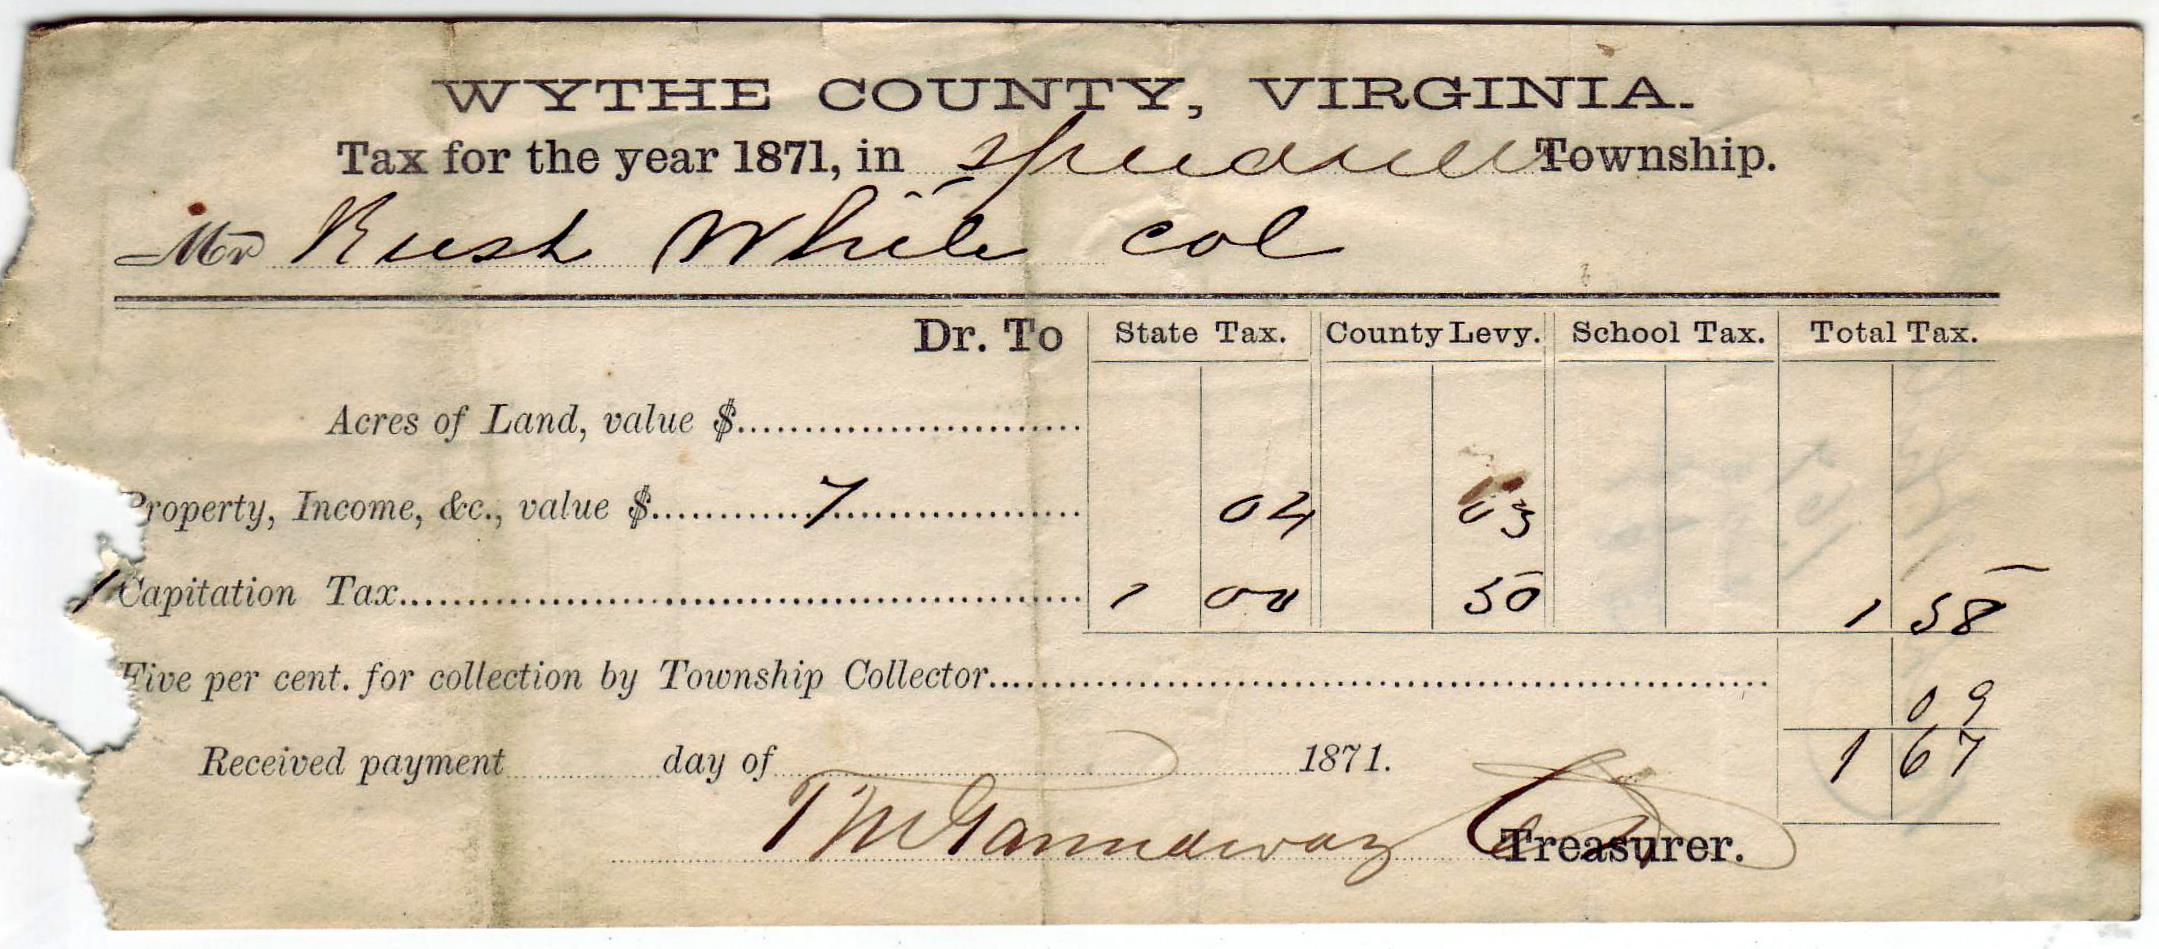 WYTHE COUNTY, VIRGINIA.
Tax for the year 1871, in Township.
Mr Rush White col
Dr. To State Tax. County Levy. School Tax. Total Tax.
Acres of Land, value $
Property, Income, &c., value $ 7 04 03
1 Capitation Tax 1 00 50 1 58
Five per cent. for collection by Township Collector 09
Received payment day of 1871. 1 67
T M Gannaway Treasurer.